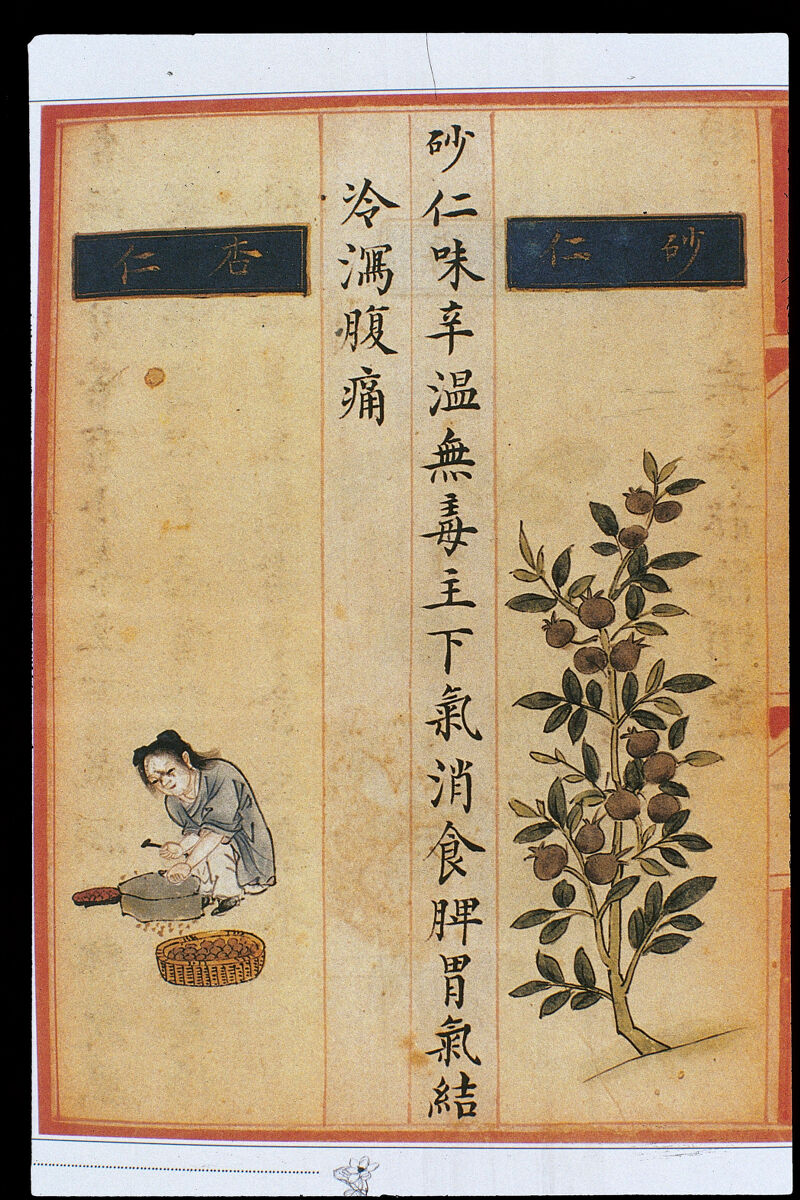 砂仁
砂仁味辛温無毒主下氣消食脾胃氣結
冷瀉腹痛
杏仁